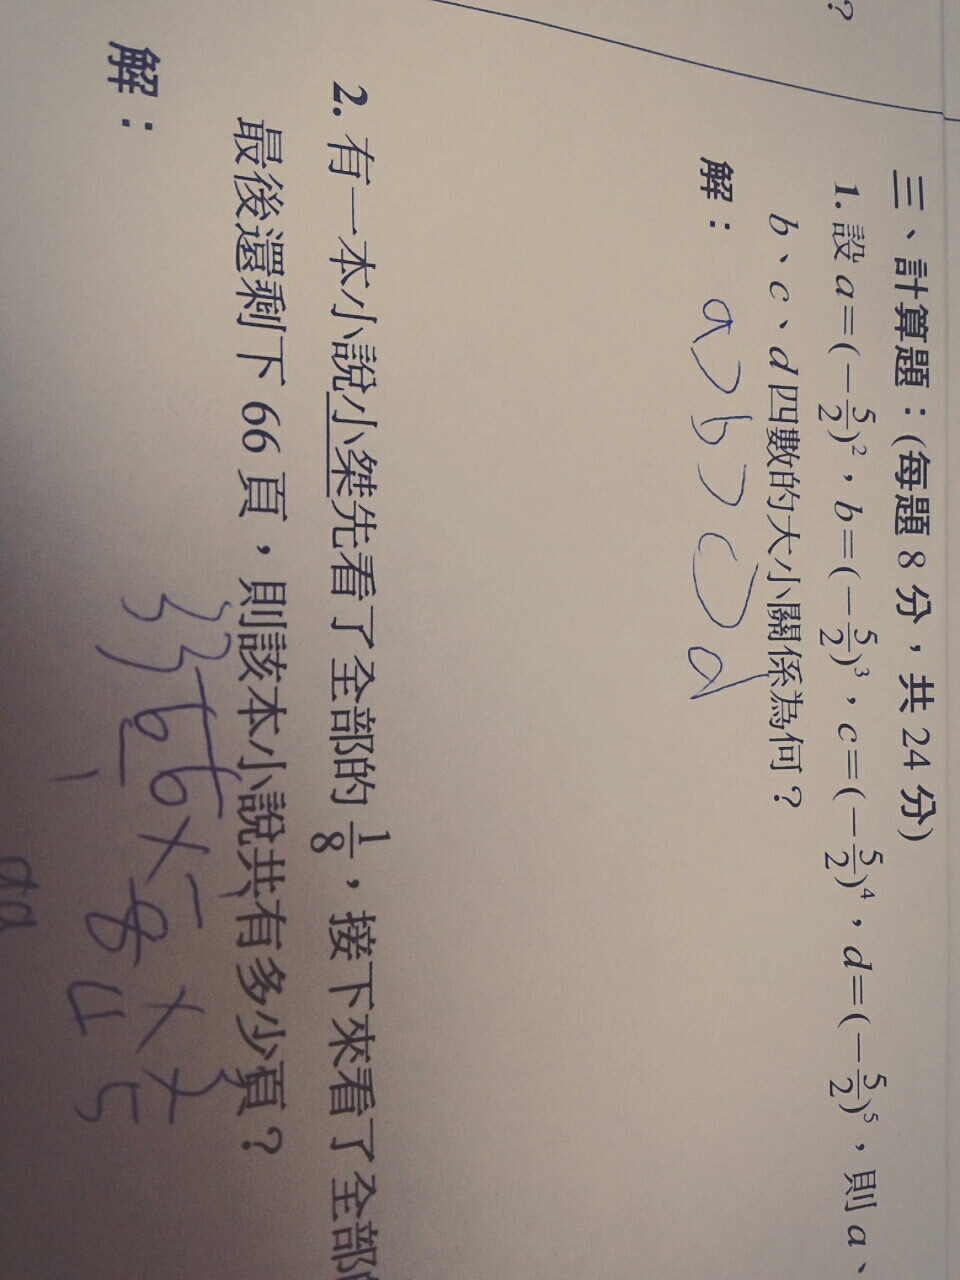 ?
三、計算題：(每題 8 分，共 24 分)
1. 設 a=(-5/2)²，b=(-5/2)³，c=(-5/2)⁴，d=(-5/2)⁵，則 a、
b、c、d 四數的大小關係為何？
解： a>b>c>d
2. 有一本小說小桀先看了全部的 1/8，接下來看了全部
最後還剩下 66 頁，則該本小說共有多少頁？
解：